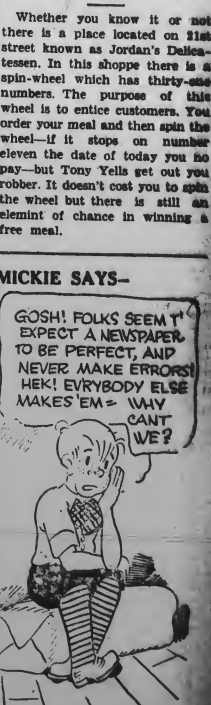 Whether you know it or not
there is a place located on 21st
street known as Jordan's Delica-
tessen. In this shoppe there is a
spin-wheel which has thirty-one
numbers. The purpose of this
wheel is to entice customers. You
order your meal and then spin the
wheel—if it stops on number
eleven the date of today you no
pay—but Tony Yells get out you
robber. It doesn't cost you to spin
the wheel but there is still an
elemint of chance in winning a
free meal.
MICKIE SAYS—
GOSH! FOLKS SEEM T'
EXPECT A NEWSPAPER
TO BE PERFECT, AND
NEVER MAKE ERRORS!
HEK! EV'RYBODY ELSE
MAKES 'EM = WHY
CANT
WE?